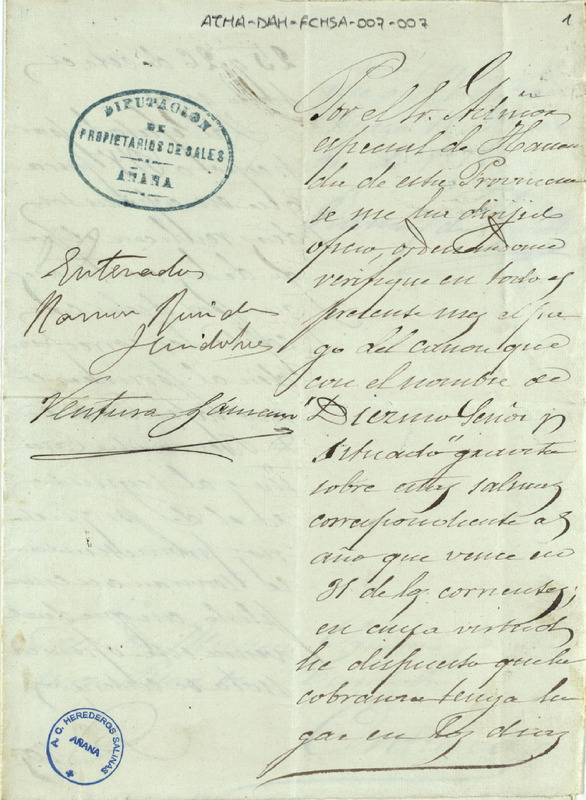 ATHA-DAH-FCHSA-007-007
1
DIPUTACIÓN
DE
PROPIETARIOS DE SALES
AÑANA
Por el Sr. Admor
especial de Hacien
da de esta Provincia
se me ha dirijido
oficio, ordenandome
verifique en todo el
presente mes el pa
go del canon que
con el nombre de
"Diezmo Señor y
Situado" gravita
sobre esas salinas
correspondiente al
año que vence en
31 de los corrientes;
en cuya virtud
he dispuesto que la
cobranza tenga lu
gar en los dias
Enterados
Ramon
Ventura
A. C. HEREDEROS SALINAS
AÑANA